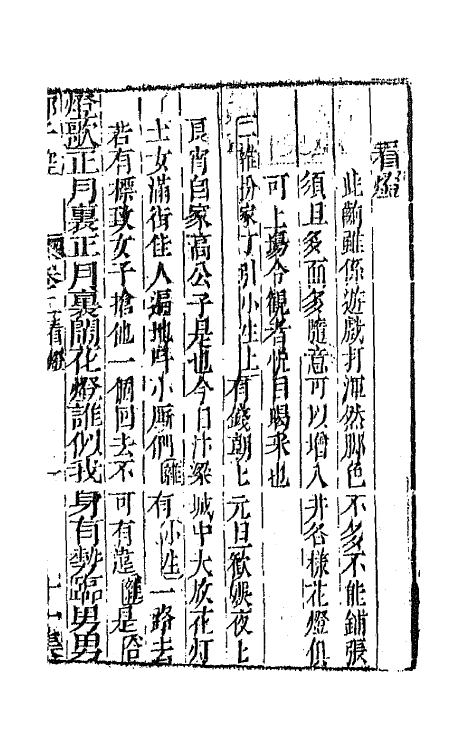 看燈
此齣雖係遊戲打渾然脚色不多不能鋪張
須且多而多隨意可以增入并各樣花燈俱
可上塲令觀者悅目喝采也
二雜扮家丁引小生上有錢朝七元日歡娛夜七
良宵自家高公子是也今日汴梁城中大放花灯
士女滿街住人遍地吽小厮們雜有小生一路去
若有標致女子搶他一個回去不可有違雜是合
燈歌正月裏正月裏閙花燈誰似我身有勢臨男男
卷二看燈